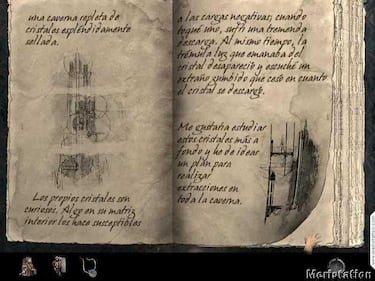 una caverna repleta de
cristales esplendidamente
sellada.
Los propios cristales son
curiosos. Algo en su matriz
interior los hace susceptibles
a las cargas negativas; cuando
toqué uno, sufrí una tremenda
descarga. Al mismo tiempo, la
trémula luz que emanaba del
cristal desapareció y escuché un
extraño zumbido que cesó en cuanto
el cristal se descargó.
Me gustaría estudiar
estos cristales más a
fondo y he de idear
un plan para
realizar
extracciones en
toda la caverna.
Meristation